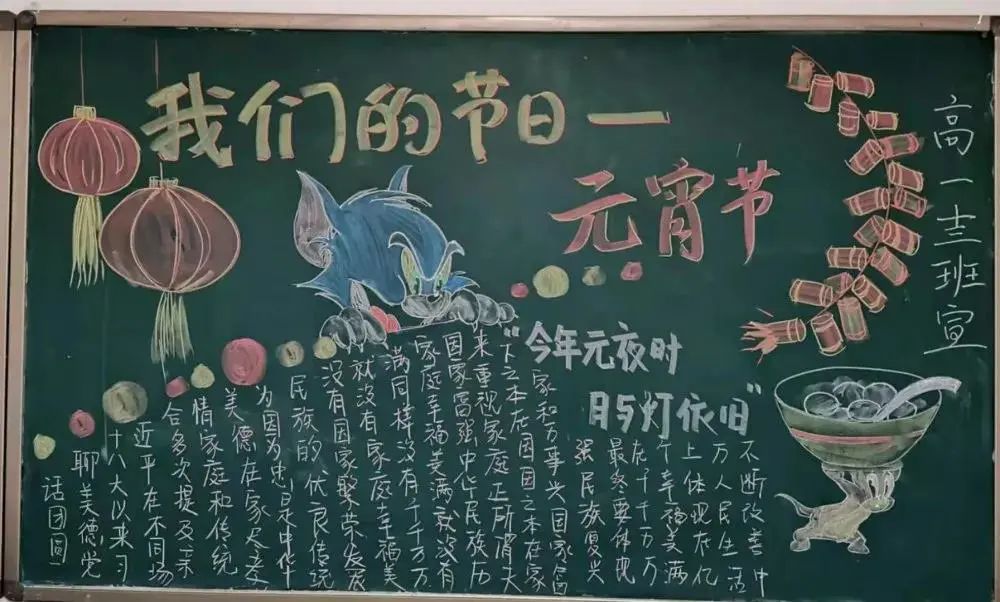 我们的节日一
元宵节
高一十三班宣
“今年元夜时
月与灯依旧”
话团圆
聊美德党
十八大以来习
近平在不同场
合多次提及亲
情家庭和传统
美德在家尽孝
为国尽忠是中华
民族的优良传统
没有国家繁荣发展
就没有家庭幸福美
满同样没有千千万万
家庭幸福美满就没有
国家富强中华民族历
来重视家庭正所谓天
下之本在国国之本在家
家和万事兴国家富
强民族复兴
最终要体现
在千千万万
个幸福美满
上体现在亿
万人民生活
不断改善中